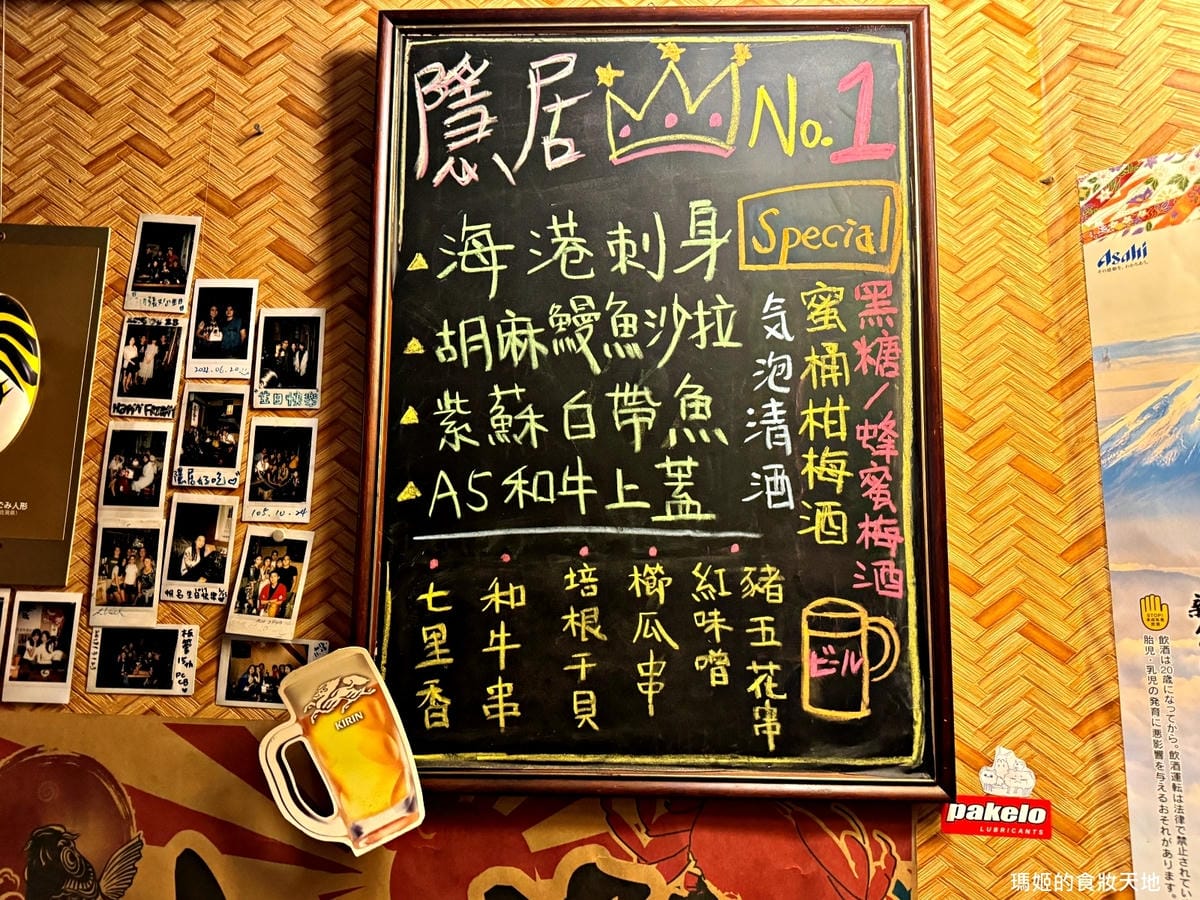 隱居 No.1
Special
海港刺身
胡麻鰻魚沙拉
紫蘇白帶魚
A5和牛上蓋
黑糖/蜂蜜梅酒
蜜桶柑梅酒
気泡清酒
七里香
和牛串
培根干貝
櫛瓜串
紅味噌
豬五花串
ビル
KIRIN
Asahi
STOP!
飲酒は20歳になってから。飲酒運転は法律で禁止されてい
胎児・乳児の発育に悪影響を与えるおそれがあります。
pakelo
LUBRICANTS
2022.06.20
生日快樂
隱居好吃
105.10.24
ごみ人形
瑪姬的食妝天地